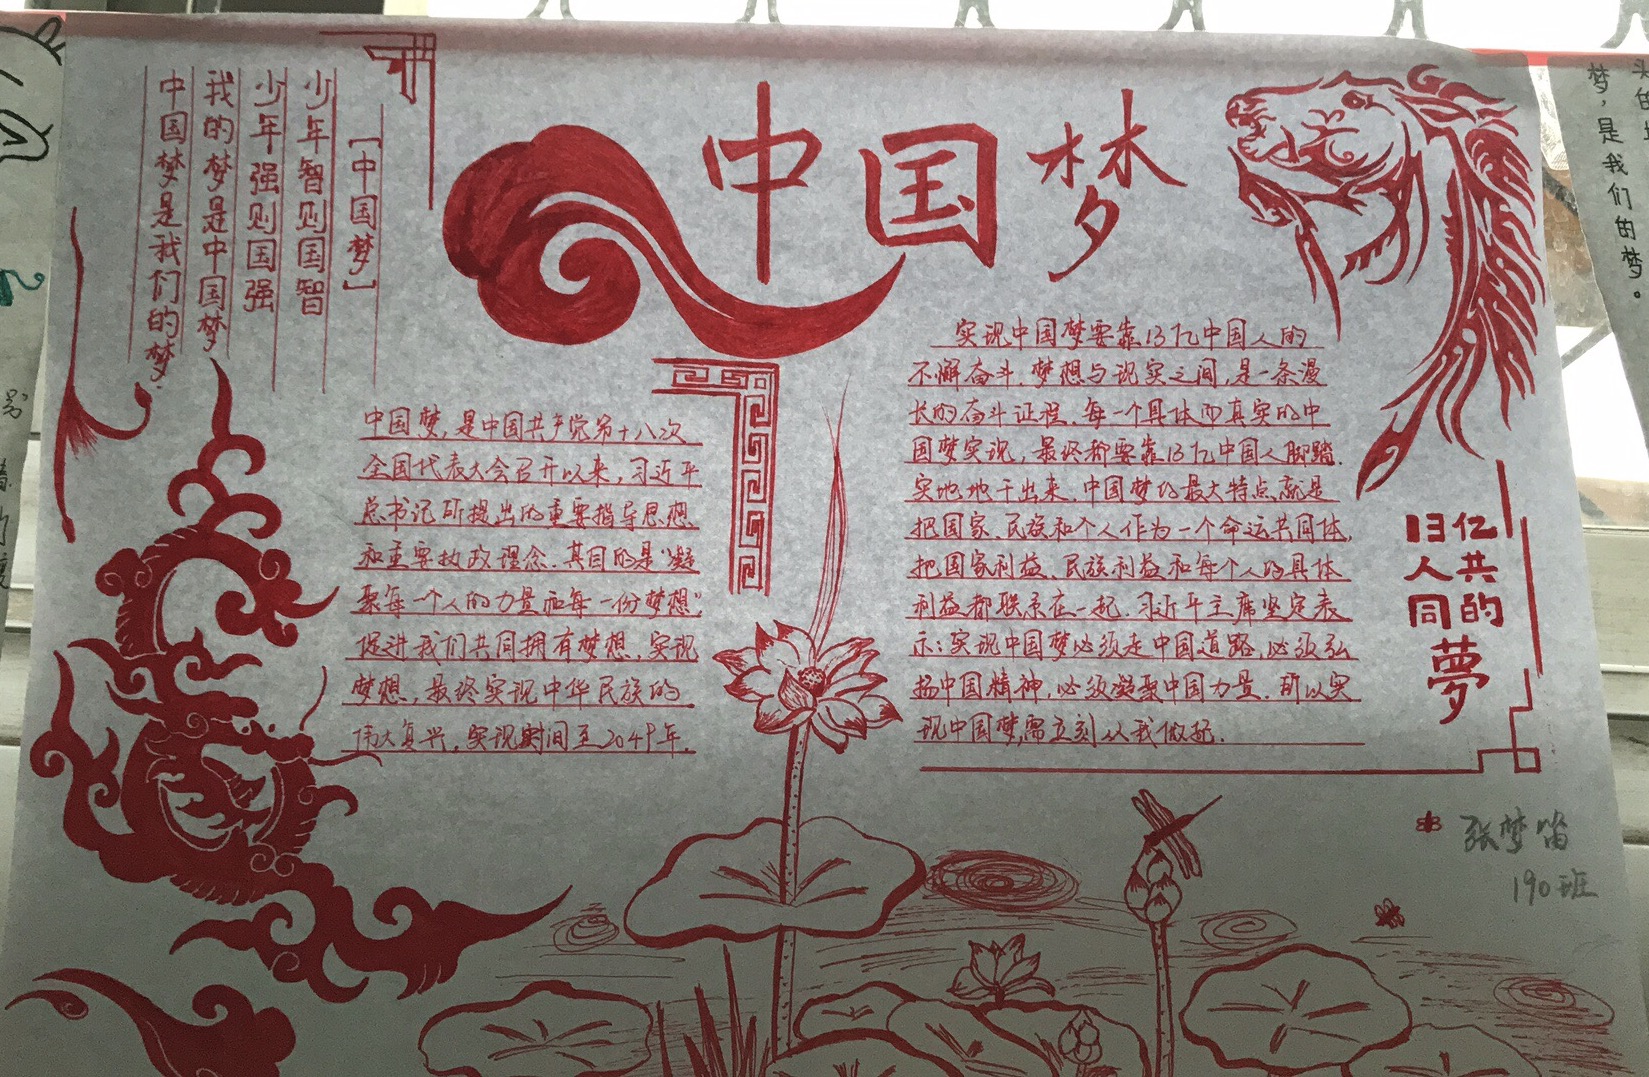 中国梦
[中国梦]
少年智则国智
少年强则国强
我的梦是中国梦
中国梦是我们的梦
中国梦,是中国共产党第十八次
全国代表大会召开以来,习近平
总书记所提出的重要指导思想
和重要执政理念.其目的是“凝
聚每一个人的力量而每一份梦想”
促进我们共同拥有梦想,实现
梦想,最终实现中华民族的
伟大复兴,实现时间至2049年.
实现中国梦要靠13亿中国人的
不懈奋斗.梦想与现实之间,是一条漫
长的奋斗证程.每一个具体而真实的中
国梦实现,最终都要靠13亿中国人脚踏
实地地干出来.中国梦的最大特点就是
把国家、民族和个人作为一个命运共同体,
把国家利益、民族利益和每个人的具体
利益都联系在一起.习近平主席坚定表
示:实现中国梦必须走中国道路,必须弘
扬中国精神,必须凝聚中国力量.所以实
现中国梦,需立刻从我做起.
13亿
人共
同的
夢
张梦笛
190班
梦,是我们的梦。